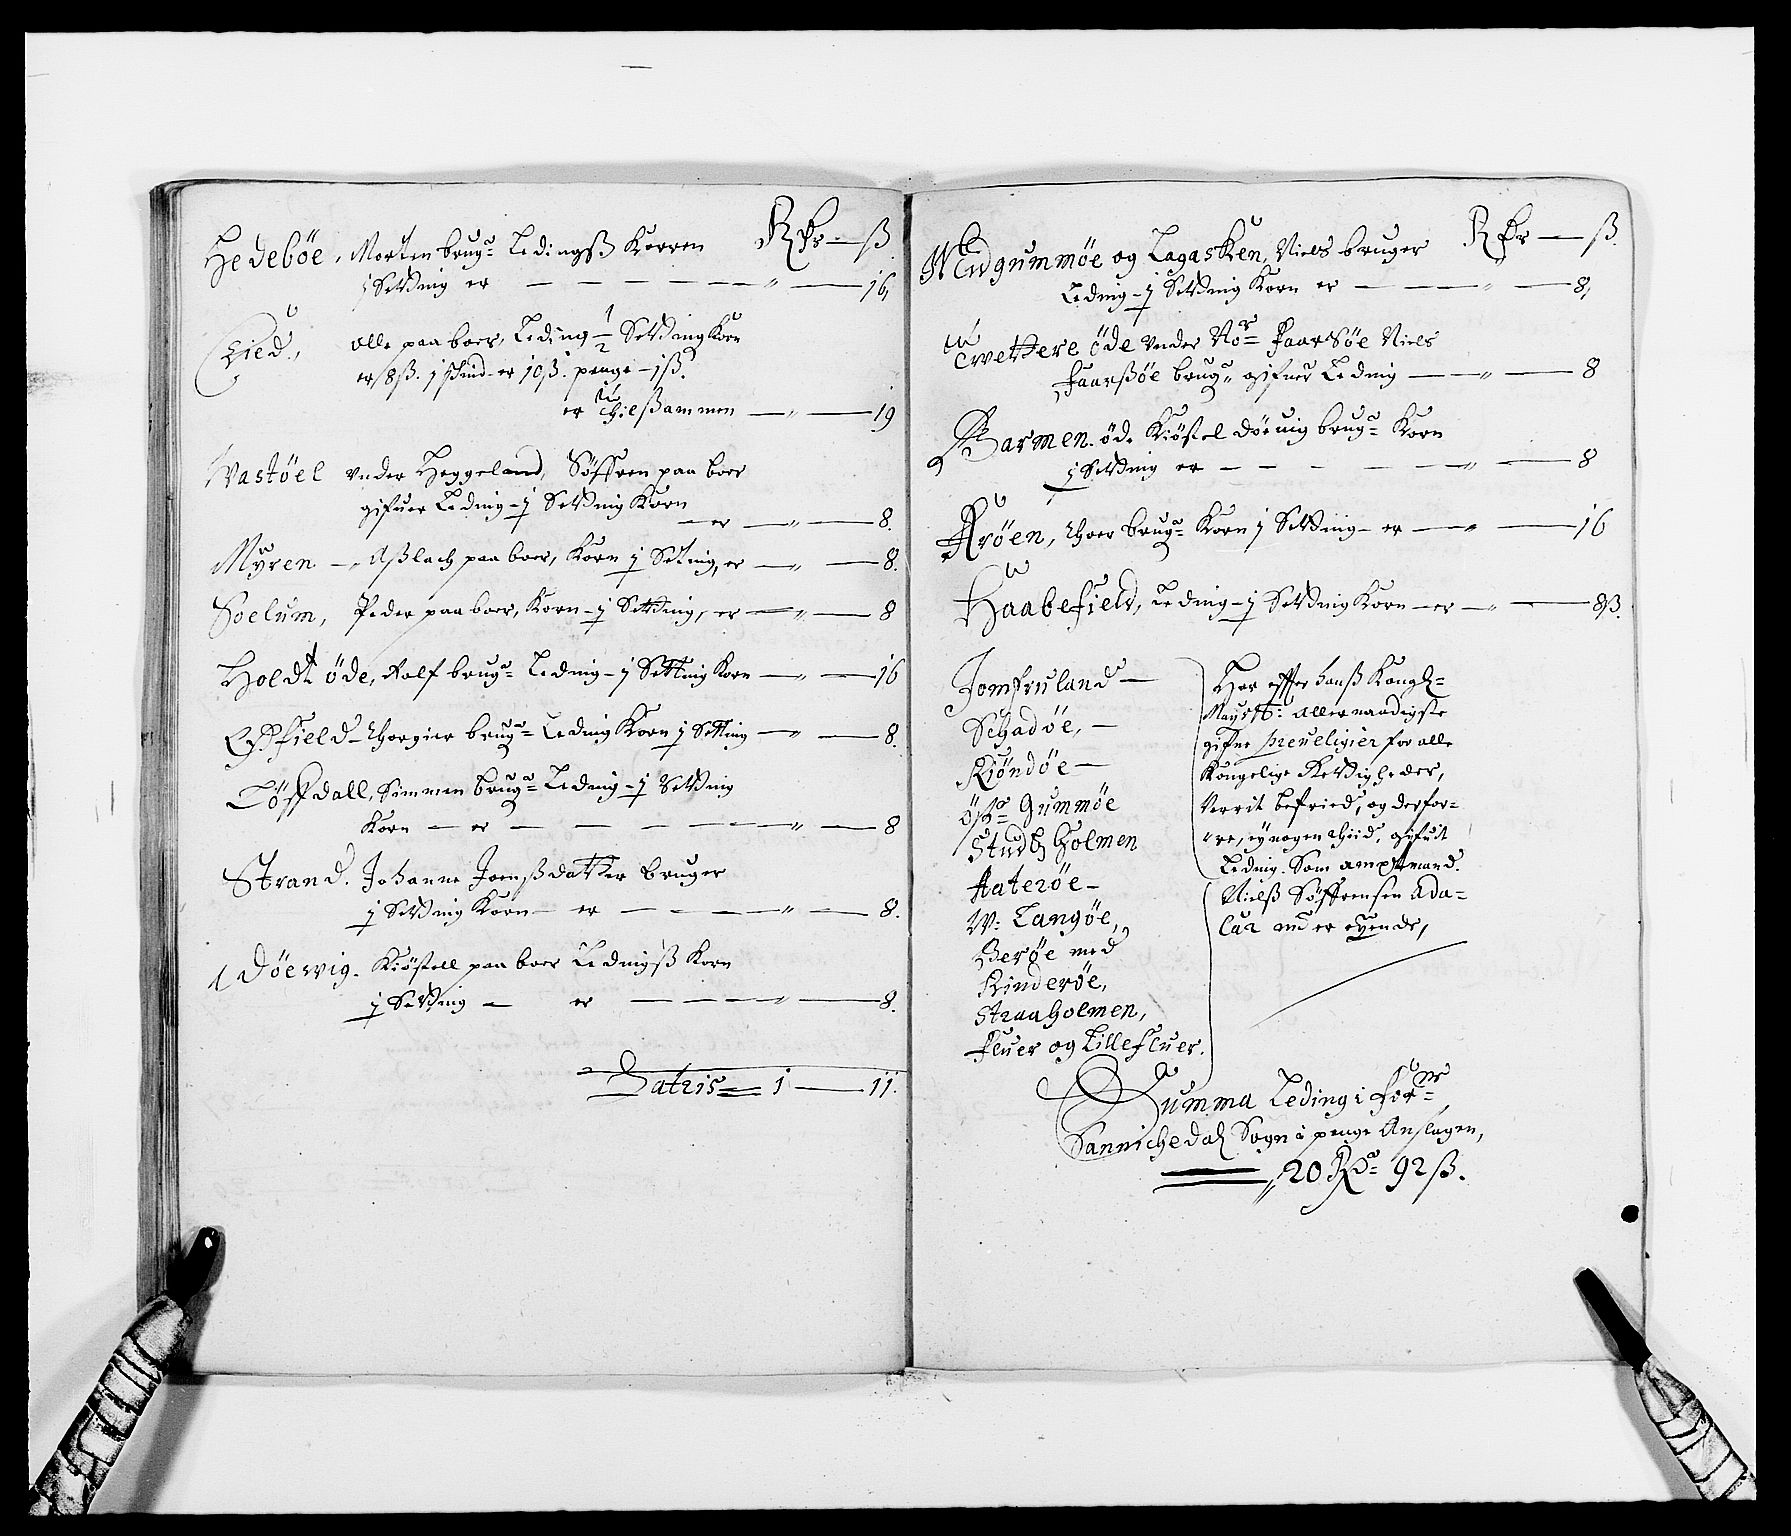 Rdr — ß
Hedebøe, Morten brugr Ledingß Korren
j Setting er — — — — — „ — 16,
Lied, olle paa boer, Leding ½ Setting Korn
er 8 ß. j skind er 10 ß. penge — 1 ß.
er tilsammen — „ — 19
Wastøel vnder Heggeland, Søffren paa boer
gifuer Leding — j Setting Korn
— er — „ — 8.
Myren — Aßlach paa boer, Korn j Setting, er — „ — 8.
Soelum, Peder paa boer, Korn — j Setting, er — „ — 8
Holdt öde, Rolf brugr Leding — j Setting Korn — „ — 16
Thorgier brugr Leding Korn j Setting — „ — 8.
Tøffdall, Simmen brugr Leding — j Setting
Korn — er — — — — „ — 8
Strand. Johanne Joenßdatter bruger
j Setting Korn — er — — — „ — 8.
Døewig. Kiøstell paa boer Ledingß Korn
j Setting — er — — — „ — 8.
Latris 1 — 11.
Rdr — ß.
Gummøe og Lagasken, Niels bruger
Leding — j Setting Korn er — — „ — 8,
öde vnder Faarsøe Niels
Faarßøe brugr gifuer Leding — „ — 8
Barmen öde Kiøstel Døeuig brugr Korn
j Setting er — — — — „ — 8
Arøen, Thoer brugr Korn j Setting — er — „ — 16
Haabefield, Leding — j Setting Korn — er — „ — 8 ß.
Jomfruland —
Schadøe, —
Kiøndøe —
öster Gummøe
Studtzholmen
Aaterøe —
W: Langøe,
Berøe med
Kinderøe,
Straaholmen,
Fluer og Lillefluer.
Har effter hanß Kongl:
Mayst: allernaadigste
gifne preueligier for alle
Kongelige Rettigheder,
Verrit befried, og derfor-
re, ey nogen thiid, gifuit
Leding. Som amptmand.
Nielß Søffrensen Ada-
Lar nu er eyende,
Summa Leding i forne
Sannichedal Sogn i penge Anslagen,
20 Rdr 92 ß.